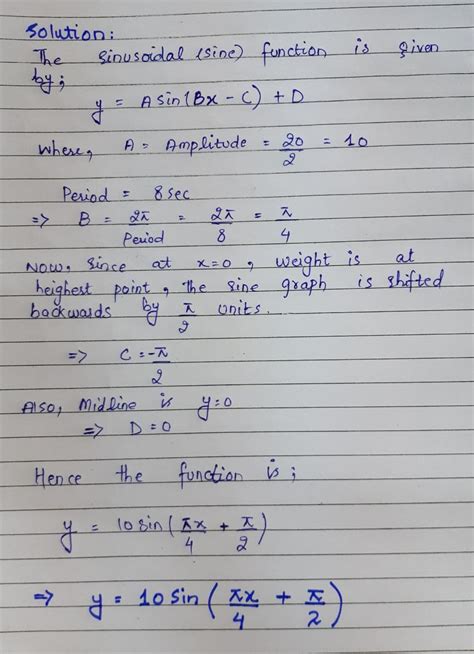 Solution:
The sinusoidal (sine) function is given
by;
y = A sin(Bx - C) + D
Where, A = Amplitude = 20/2 = 10
Period = 8 sec
=> B = 2π/Period = 2π/8 = π/4
Now, since at x=0, weight is at
heighest point, the sine graph is shifted
backwards by π/2 units.
=> C = -π/2
Also, Midline is y=0
=> D = 0
Hence the function is;
y = 10 sin(πx/4 + π/2)
=> y = 10 sin(πx/4 + π/2)